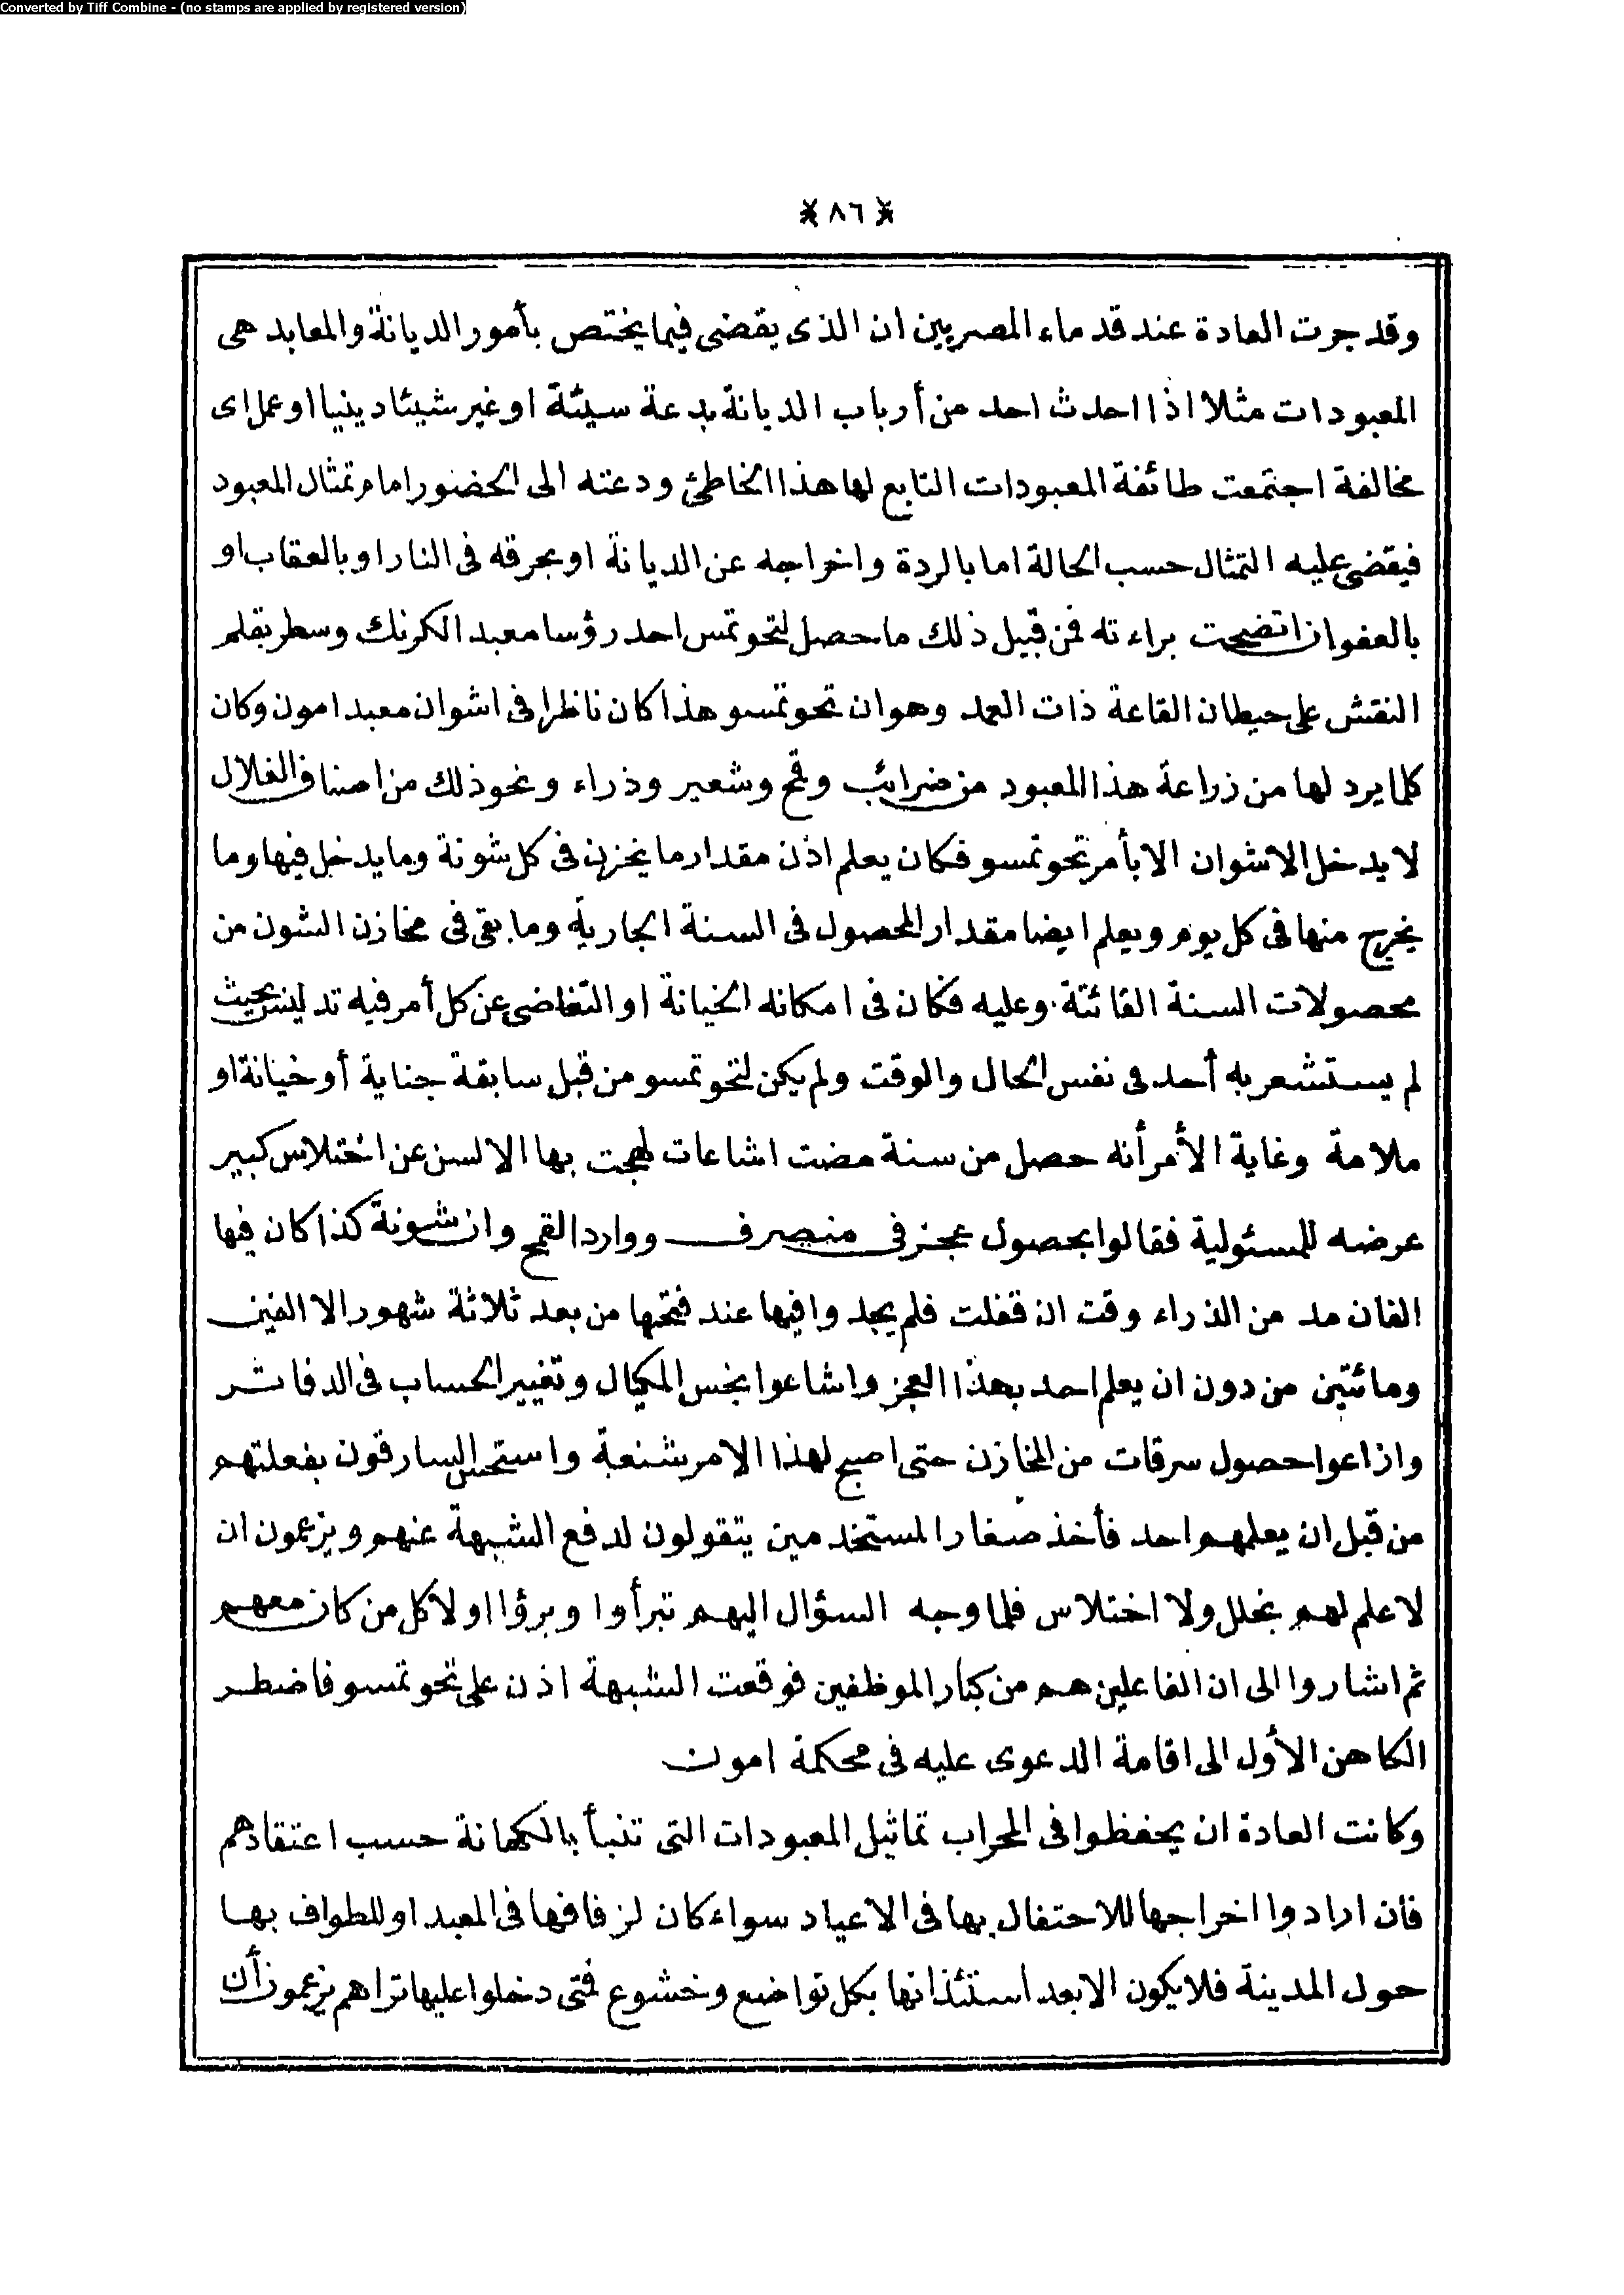 Converted by Tiff Combine - (no stamps are applied by registered version)
٨٦
وقد جرت العادة عند قدماء المصريين ان الذى يقضى فيما يختص بأمور الديانة والمعابد هى
المعبودات مثلا اذا احدث احد من أرباب الديانة بدعة سيئة او غير شيئا دينيا او عمل اى
مخالفة اجتمعت طائفة المعبودات التابع لها هذا الخاطئ ودعته الى الحضور امام تمثال المعبود
فيقضى عليه التمثال حسب الحالة اما بالردة واخراجه عن الديانة او بحرقه فى النار او بالعقاب او
بالعفو ان اتضحت براءته فمن قبيل ذلك ما حصل لتحوتمس احد رؤسا معبد الكرنك وسطر بقلم
النقش على حيطان القاعة ذات العمد وهو ان تحوتمسو هذا كان ناظرا فى اشوان معبد امون وكان
كلما يرد لها من زراعة هذا المعبود من ضرائب وقمح وشعير وذراء ونحو ذلك من اصناف الغلال
لا يدخل الاشوان الا بأمر تحوتمسو فكان يعلم اذن مقدار ما يخزن فى كل شونة وما يدخل فيها وما
يخرج منها فى كل يوم ويعلم ايضا مقدار المحصول فى السنة الجارية وما بقى فى مخازن الشون من
محصولات السنة الفائتة وعليه فكان فى امكانه الخيانة او التغاضى عن كل أمر فيه تدليس بحيث
لم يستشعر به أحد فى نفس الحال والوقت ولم يكن لتحوتمسو من قبل سابقة جناية أو خيانة او
ملامة وغاية الأمر أنه حصل من سنة مضت اشاعات لهجت بها الالسن عن اختلاس كبير
عرضه للمسئولية فقالوا بحصول عجز فى منصرف ووارد القمح وان شونة كذا كان فيها
الفان مد من الذراء وقت ان قفلت فلم يجدوا فيها عند فتحها من بعد ثلاثة شهور الا الفين
ومائتين من دون ان يعلم احد بهذا العجز واشاعوا بخس المكيال وتغيير الحساب فى الدفاتر
واذاعوا حصول سرقات من المخازن حتى اصبح لهذا الامر شنعة واستحس السارقون بفعلتهم
من قبل ان يعلمهم احد فأخذ صغار المستخدمين يتقولون لدفع الشبهة عنهم ويزعمون ان
لا علم لهم بخلل ولا اختلاس فلما وجه السؤال اليهم تبرأوا وبرؤا اولا كل من كان معهم
ثم اشاروا الى ان الفاعلين هم من كبار الموظفين فوقعت الشبهة اذن على تحوتمسو فاضطر
الكاهن الأول الى اقامة الدعوى عليه فى محكمة امون
وكانت العادة ان يحفظوا فى المحراب تماثيل المعبودات التى تنبأ بالكهانة حسب اعتقادهم
فان ارادوا اخراجها للاحتفال بها فى الاعياد سواء كان لزفافها فى المعبد او للطواف بها
حول المدينة فلا يكون الا بعد استئذانها بكل تواضع وخشوع فمتى دخلوا عليها تراهم يزعمون أن